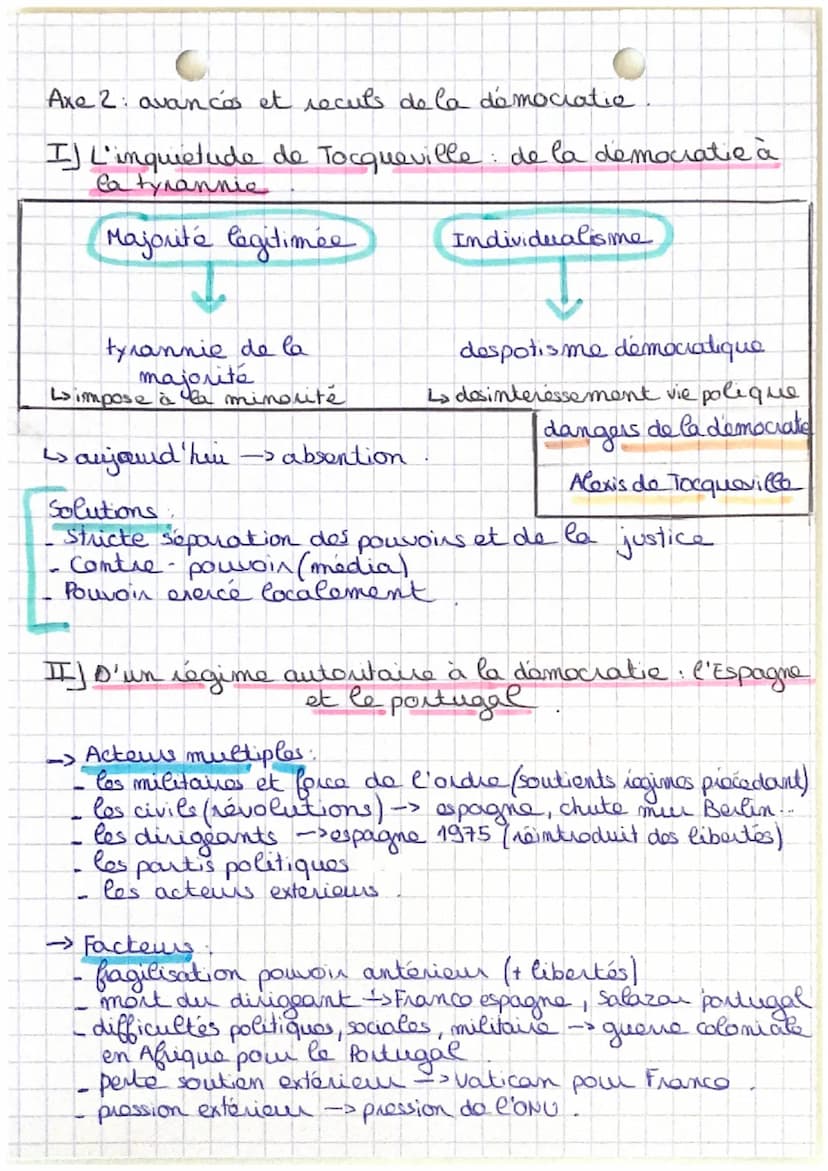 Axe 2 : avancés et reculs de la démocratie.
I) L'inquietude de Tocqueville : de la democratie à
la tyrannie.
Majorité légitimée
Individualisme
tyrannie de la
majorité
↳ impose à la minorité
despotisme démocratique
↳ desinteréssement vie polique
dangers de la démocratie
Alexis de Tocqueville
↳ aujourd'hui → absention.
Solutions :
- Stricte séparation des pouvoirs et de la justice
- Contre-pouvoir (média)
- Pouvoir exercé localement.
II) D'un régime autoritaire à la démocratie : l'Espagne
et le portugal.
→ Acteurs multiples :
- les militaires et force de l'ordre (soutients régimes précédant)
- les civils (révolutions) → espagne, chute mur Berlin...
- les dirigeants → espagne 1975 (réintroduit des libertés)
- les partis politiques
- les acteurs exterieurs.
→ Facteurs :
- fragilisation pouvoir antérieur (+ libertés)
- mort du dirigeant ↳ Franco espagne, Salazar portugal
- difficultés politiques, sociales, militaire → guerre coloniale
en Afrique pour le Portugal.
- perte soutien extérieur → vatican pour Franco.
- pression extérieur → pression de l'ONU.